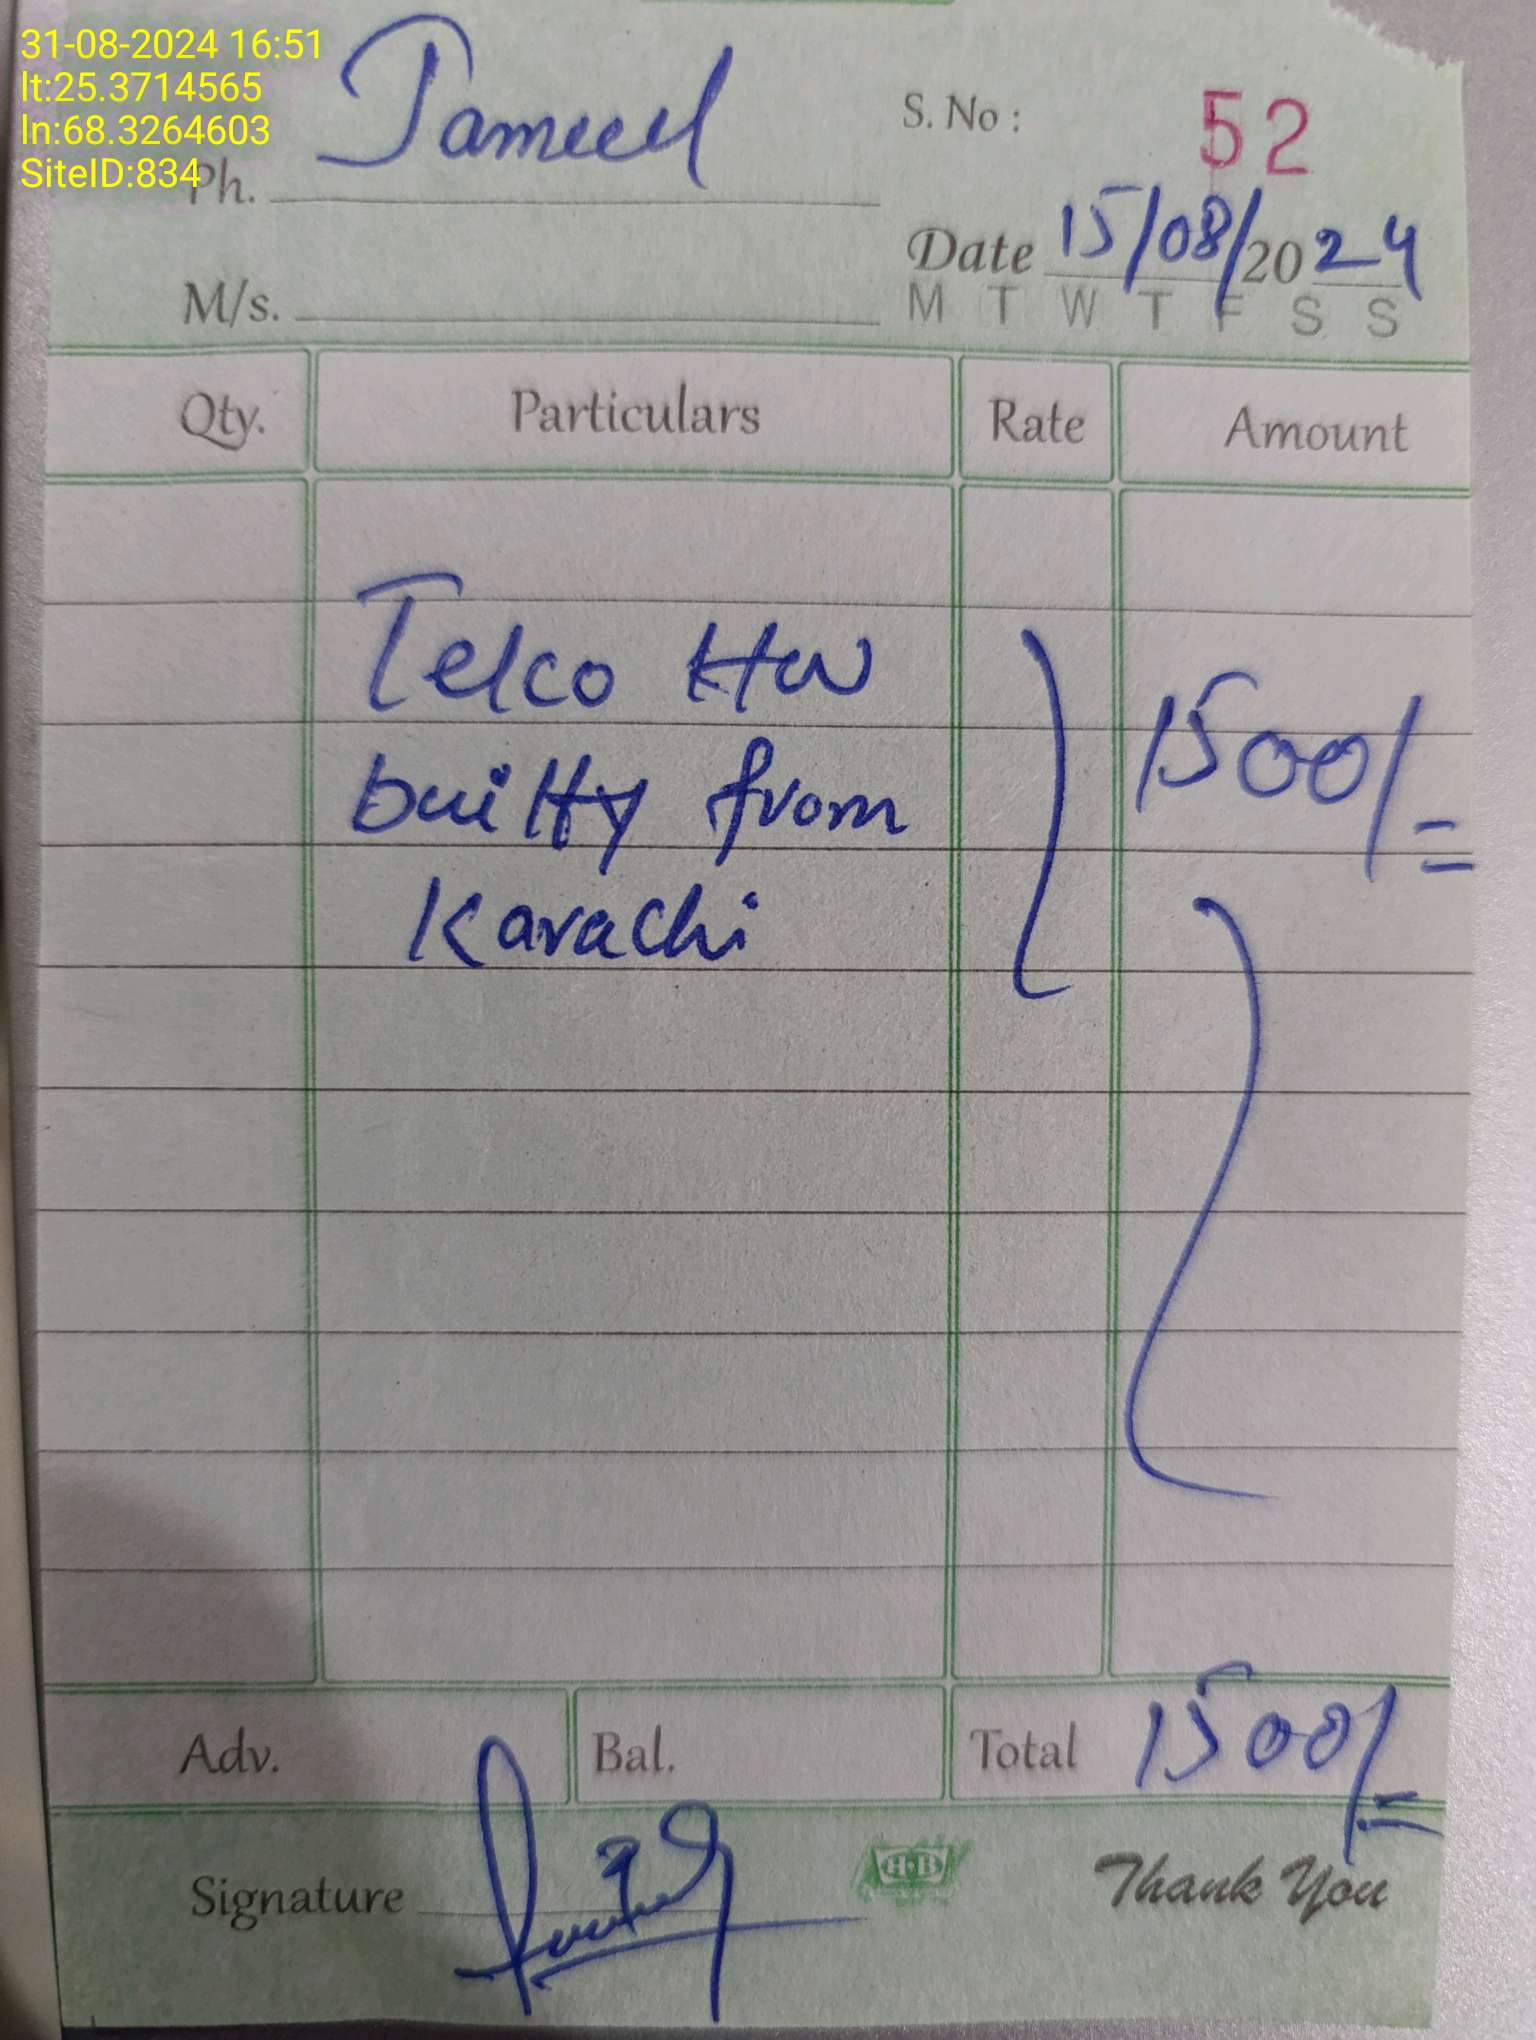 31-08-2024 16:51
lt:25.3714565
ln:68.3264603
SiteID:834
Jameel
Ph.
S. No : 52
Date 15/08/2024
M T W T F S S
M/s.
Qty. Particulars Rate Amount
Telco HW
builty from
Karachi
1500/=
Adv. Bal. Total 1500/=
Signature
H·B
Thank You